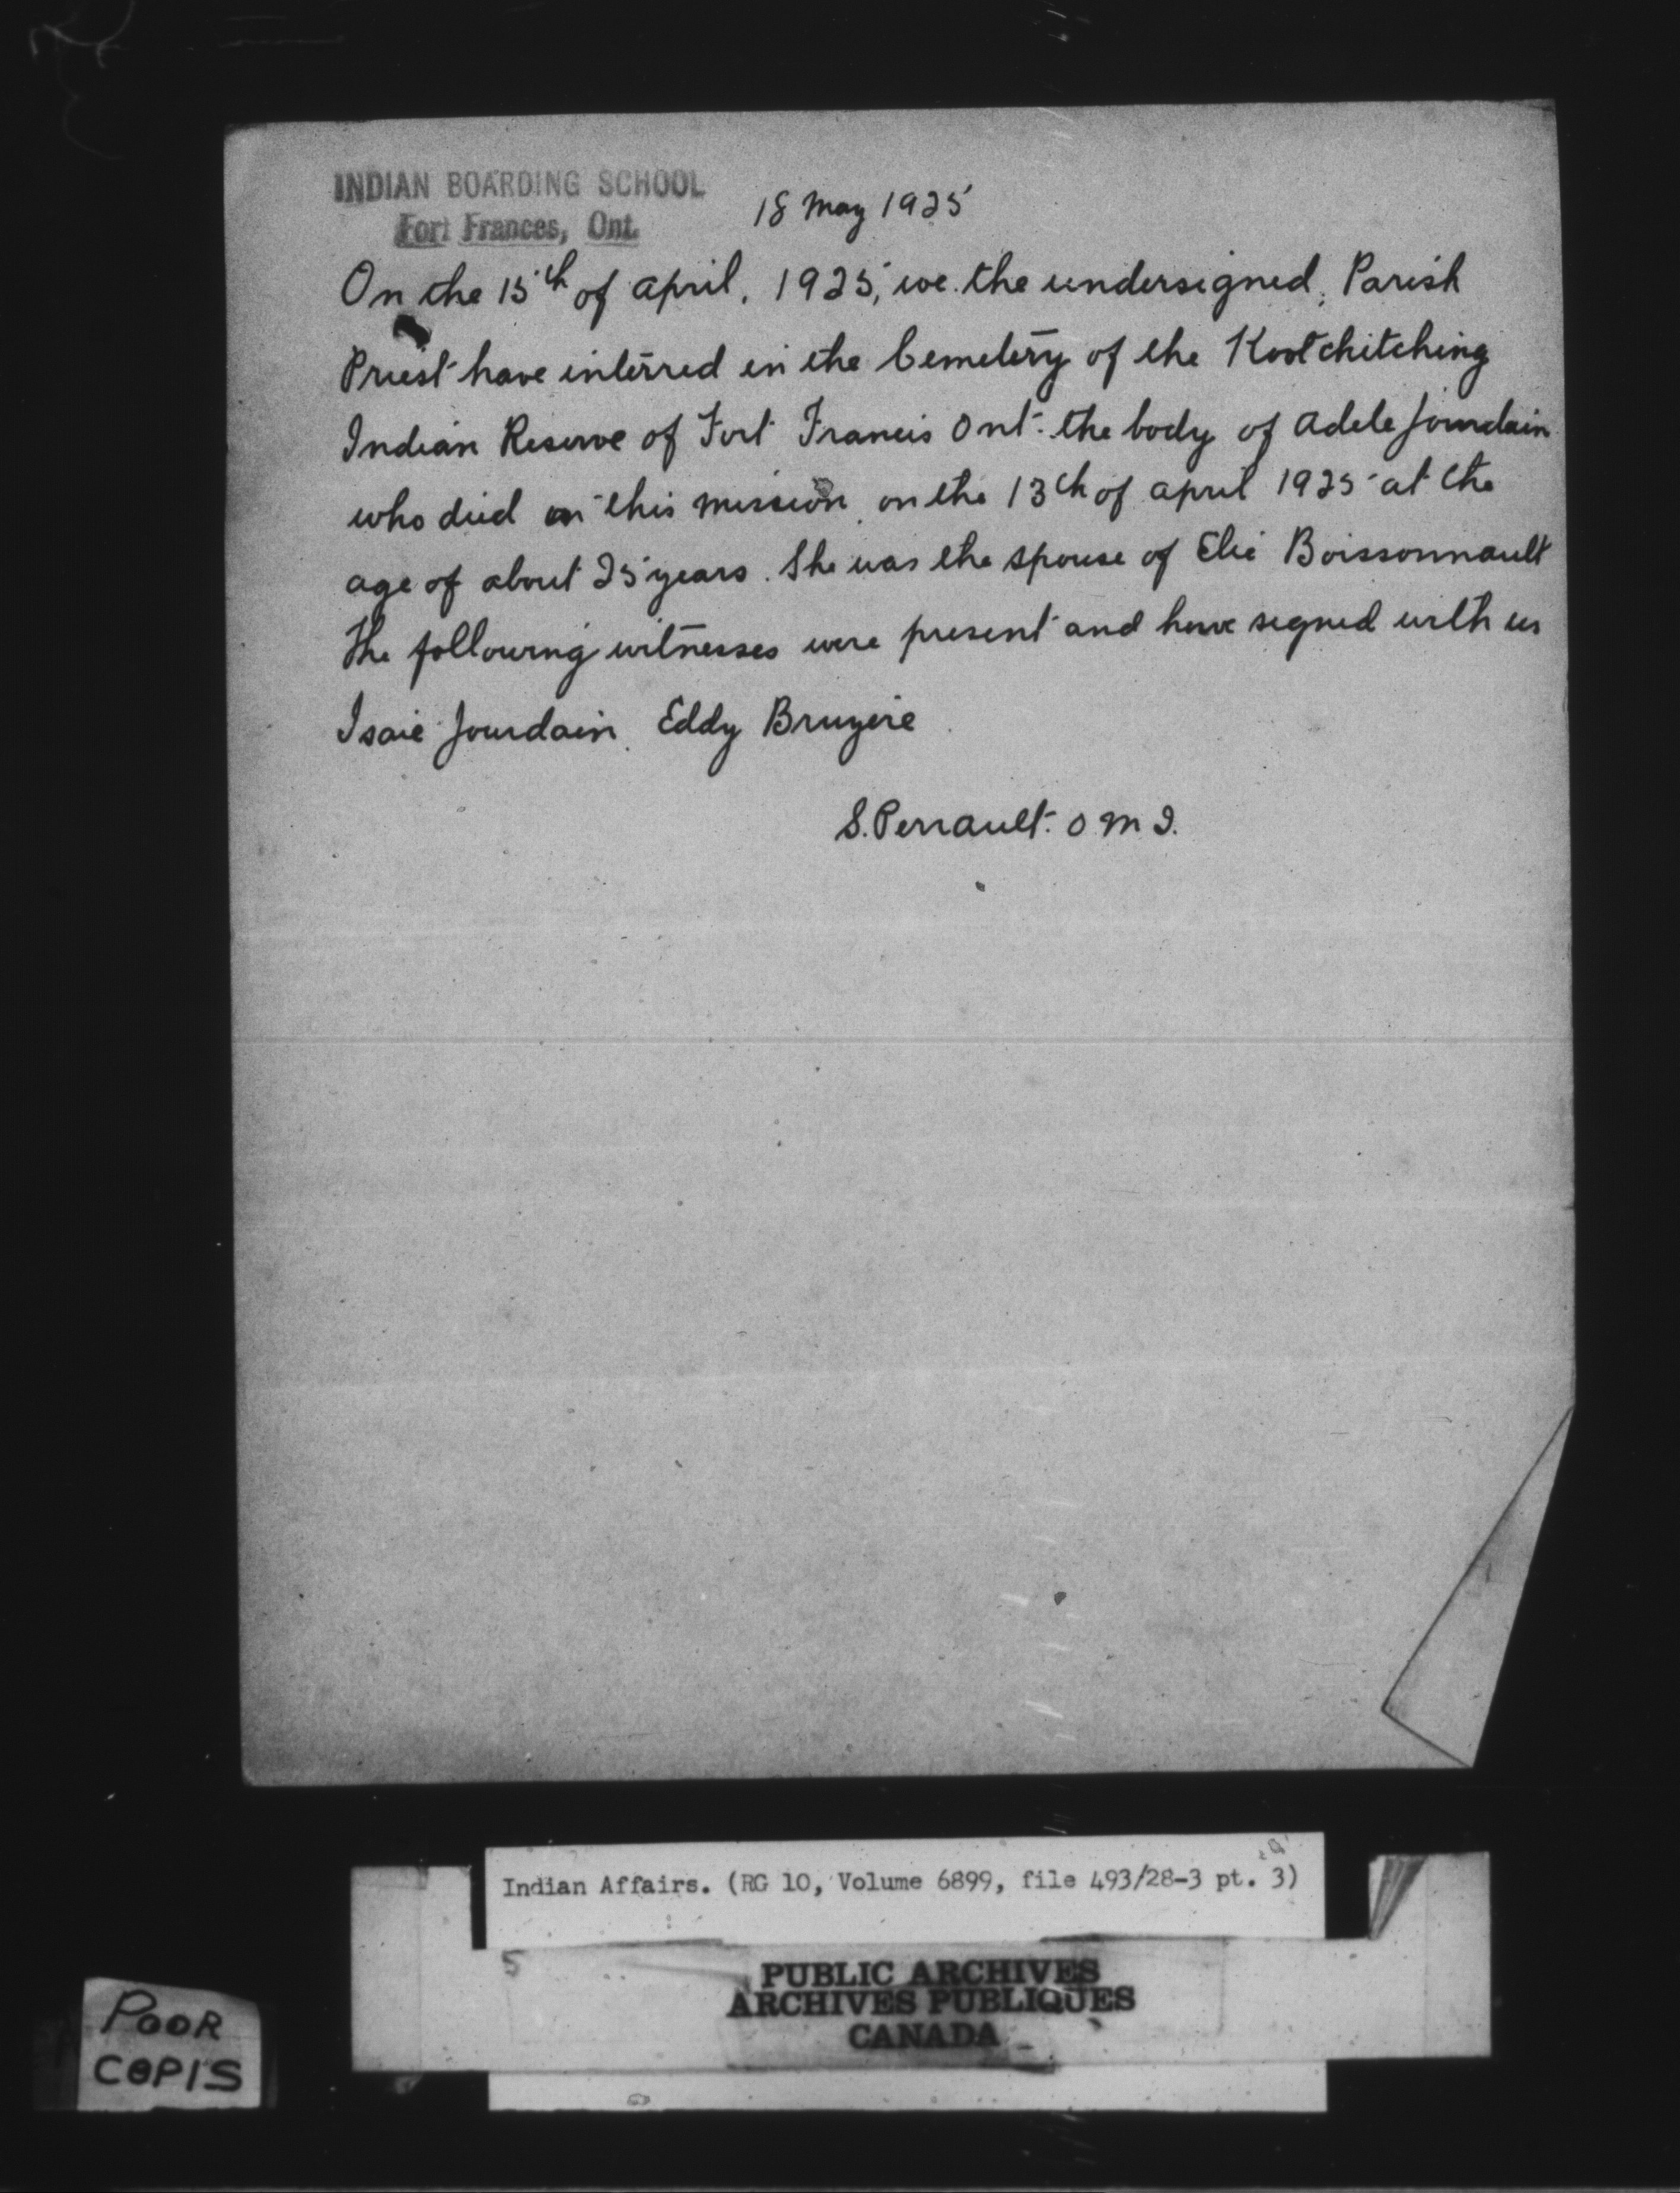 INDIAN BOARDING SCHOOL
Fort Frances, Ont.
18 May 1925
On the 15th of april, 1925, we the undersigned, Parish
Priest have interred in the Cemetery of the Kootchitching
Indian Reserve of Fort Francis Ont. the body of Adele Jourdain
who died in this mission, on the 13th of april 1925 at the
age of about 25 years. She was the spouse of Elie Boissonnault
The following witnesses were present and have signed with us
Isaie Jourdain, Eddy Bruyere
S. Perrault. O M I.
Indian Affairs. (RG 10, Volume 6899, file 493/28-3 pt. 3)
5
PUBLIC ARCHIVES
ARCHIVES PUBLIQUES
CANADA
POOR
COPIS